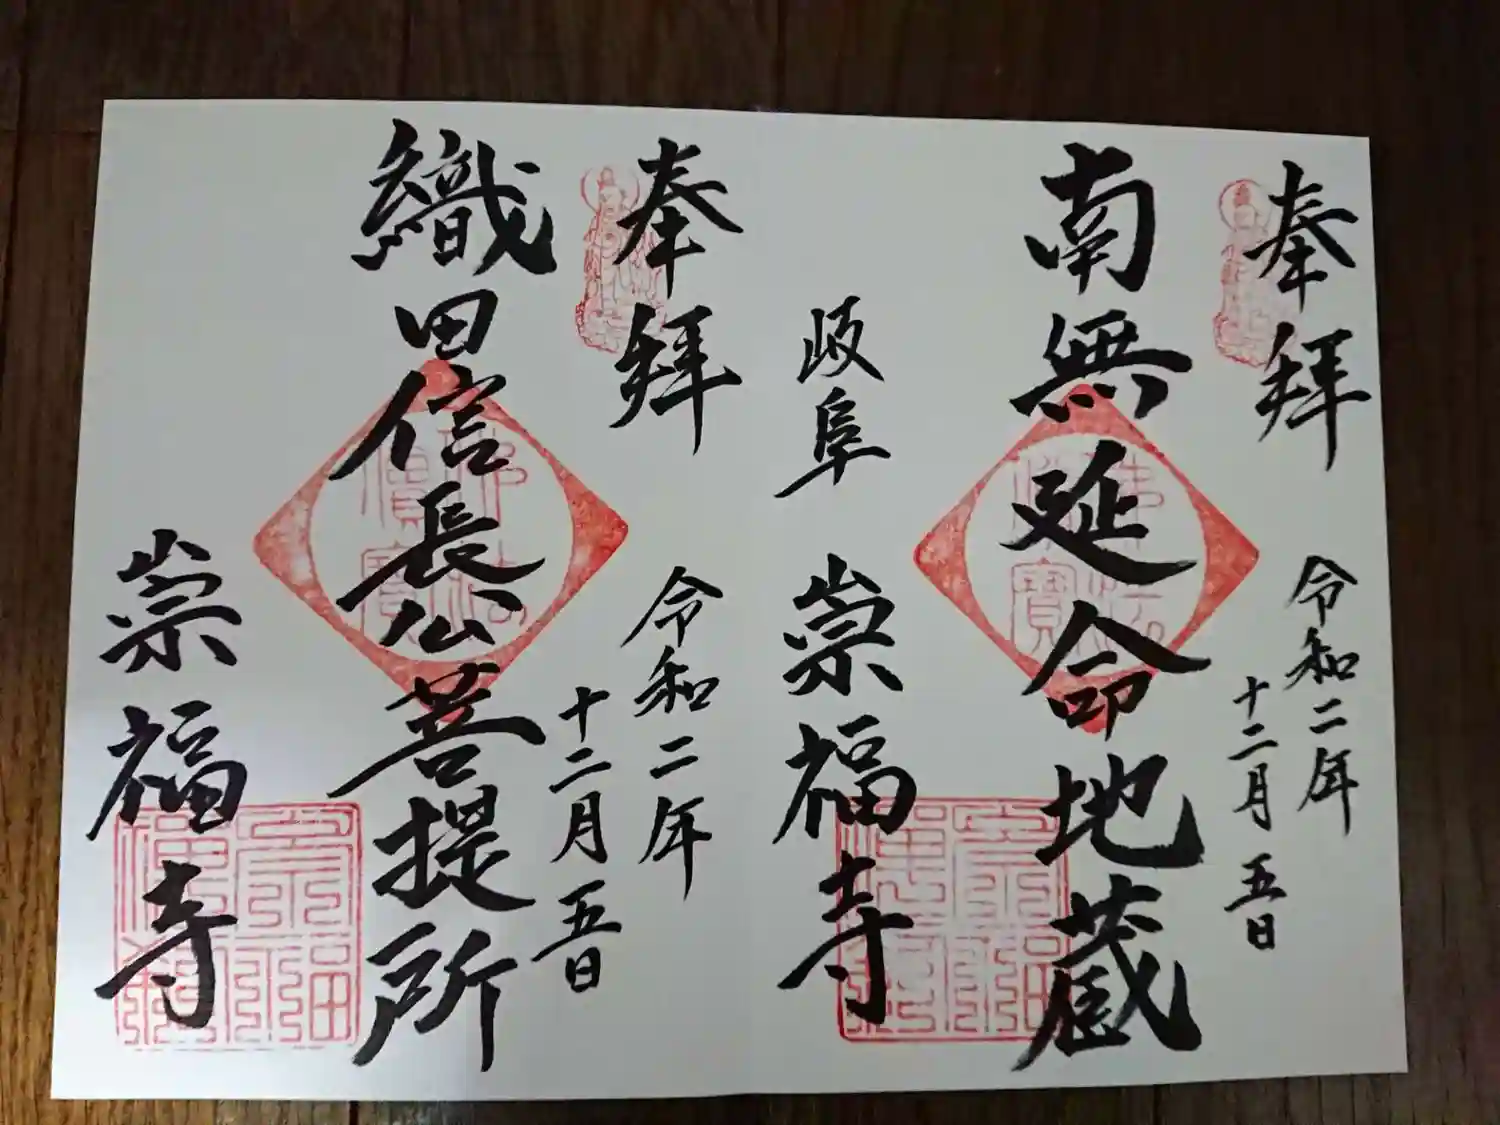 奉拝
令和二年
十二月五日
南無延命地蔵
岐阜
崇福寺
奉拝
令和二年
十二月五日
織田信長公菩提所
崇福寺